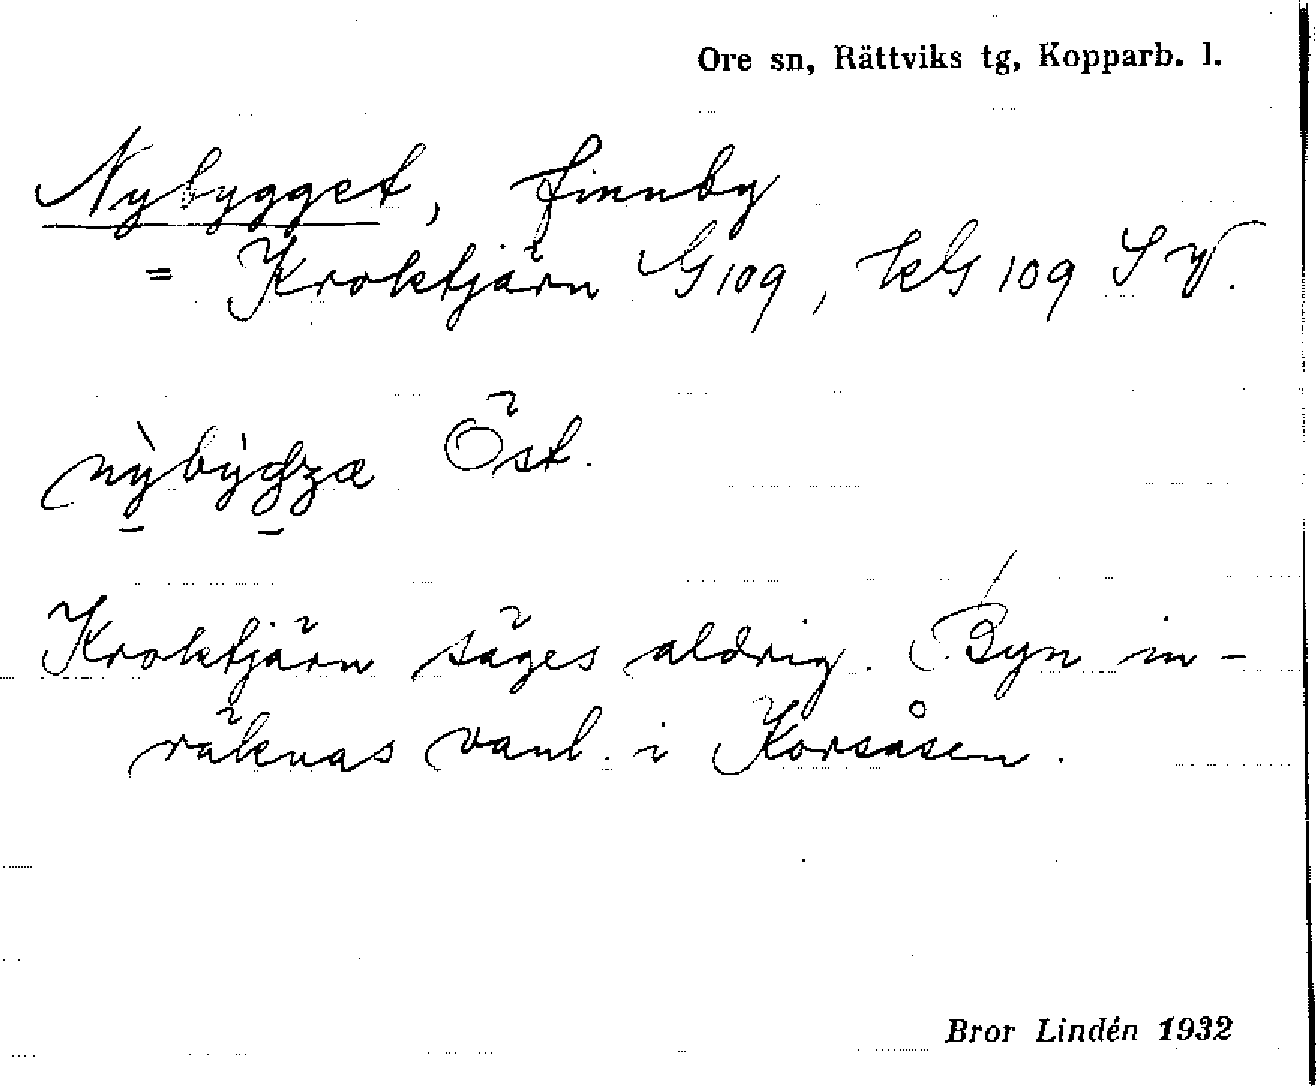 Ore sn, Rättviks tg, Kopparb. l.
Nybygget, finnby
= Kroktjärn G109, kG 109 SV.
Öst.
Kroktjärn säges aldrig. Byn in-
räknas vanl. i Korsåsen.
Bror Lindén 1932